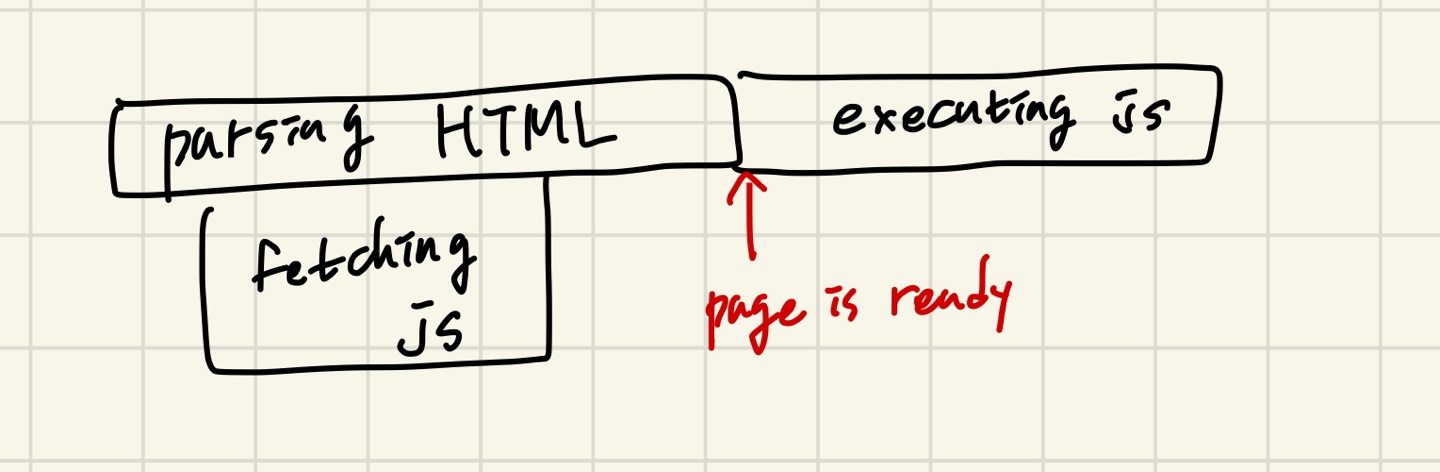 parsing HTML
executing js
fetching
js
page is ready